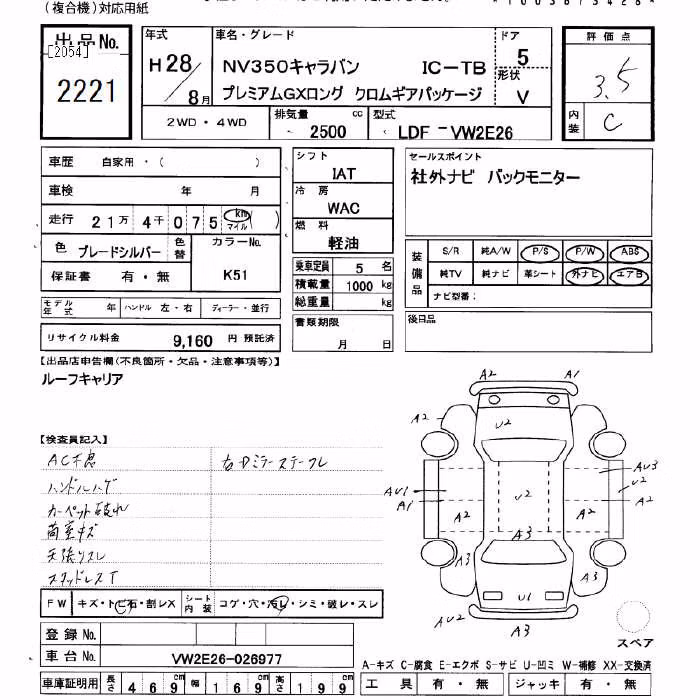 (複合機)対応用紙
出品No. [2054] 2221
年式 H28/8月
車名・グレード NV350キャラバン IC-TB
プレミアムGXロング クロムギアパッケージ
ドア 5
形状 V
評価点 3.5
内装 C
2WD・4WD 排気量 2500 cc 型式 LDF-VW2E26
車歴 自家用・( )
車検 年 月
走行 21万4千075 km マイル ( )
色 ブレードシルバー 色替 カラーNo. K51
保証書 有・無
モデル年式 年 ハンドル 左・右 ディーラー・並行
リサイクル料金 9,160 円 預託済
シフト IAT
冷房 WAC
燃料 軽油
乗車定員 5 名
積載量 1000 kg
総重量 kg
書類期限 月 日
セールスポイント
社外ナビ バックモニター
装備品 S/R 純A/W P/S P/W ABS
純TV 純ナビ 革シート 外ナビ エアB
ナビ型番:
後日品
【出品店申告欄(不良箇所・欠品・注意事項等)】
ルーフキャリア
【検査員記入】
AC不良
ハンドルハゲ
カーペット破れ
荷室キズ
天張りスレ
スタッドレスT
A2 A1
A2 U2
AU3
AU1 U2 U2
A1 A2 A2 A2
A3
A3 A3
U1
AU2 A3
スペア
FW キズ・トビ石・割レX シート内装 コゲ・穴・汚レ・シミ・破レ・スレ
登録No.
車台No. VW2E26-026977
車庫証明用 長さ 469 cm 幅 169 cm 高さ 199 cm
A-キズ C-腐食 E-エクボ S-サビ U-凹ミ W-補修 XX-交換済
工具 有・無 ジャッキ 有・無